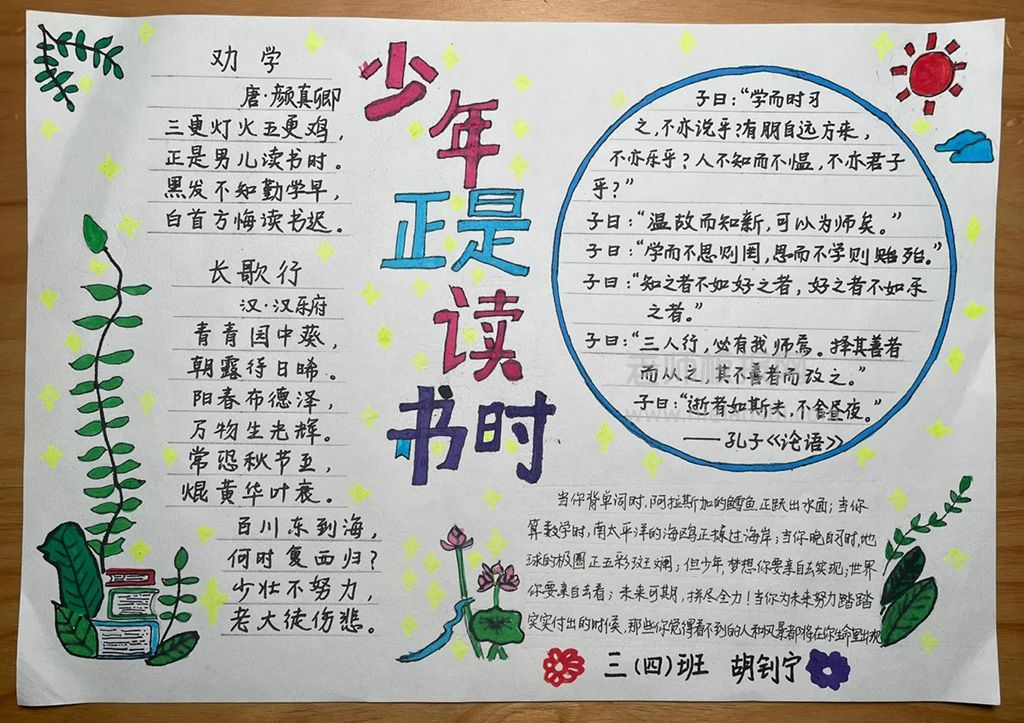 劝学
唐·颜真卿
三更灯火五更鸡，
正是男儿读书时。
黑发不知勤学早，
白首方悔读书迟。
长歌行
汉·汉乐府
青青园中葵，
朝露待日晞。
阳春布德泽，
万物生光辉。
常恐秋节至，
焜黄华叶衰。
百川东到海，
何时复西归？
少壮不努力，
老大徒伤悲。
少
年
正是
读
书时
子曰：“学而时习
之，不亦说乎？有朋自远方来，
不亦乐乎？人不知而不愠，不亦君子
乎？”
子曰：“温故而知新，可以为师矣。”
子曰：“学而不思则罔，思而不学则殆。”
子曰：“知之者不如好之者，好之者不如乐
之者。”
子曰：“三人行，必有我师焉。择其善者
而从之，其不善者而改之。”
子曰：“逝者如斯夫，不舍昼夜。”
——孔子《论语》
当你背单词时，阿拉斯加的鳕鱼正跃出水面；当你
算数学时，南太平洋的海鸥正掠过海岸；当你晚自习时，地
球的极圈正五彩斑斓；但少年，梦想你要亲自去实现；世界
你要亲自去看；未来可期，拼尽全力！当你为未来努力踏踏
实实付出的时候，那些你觉得看不到的人和风景都将在你生命里出现
三（四）班 胡钊宁